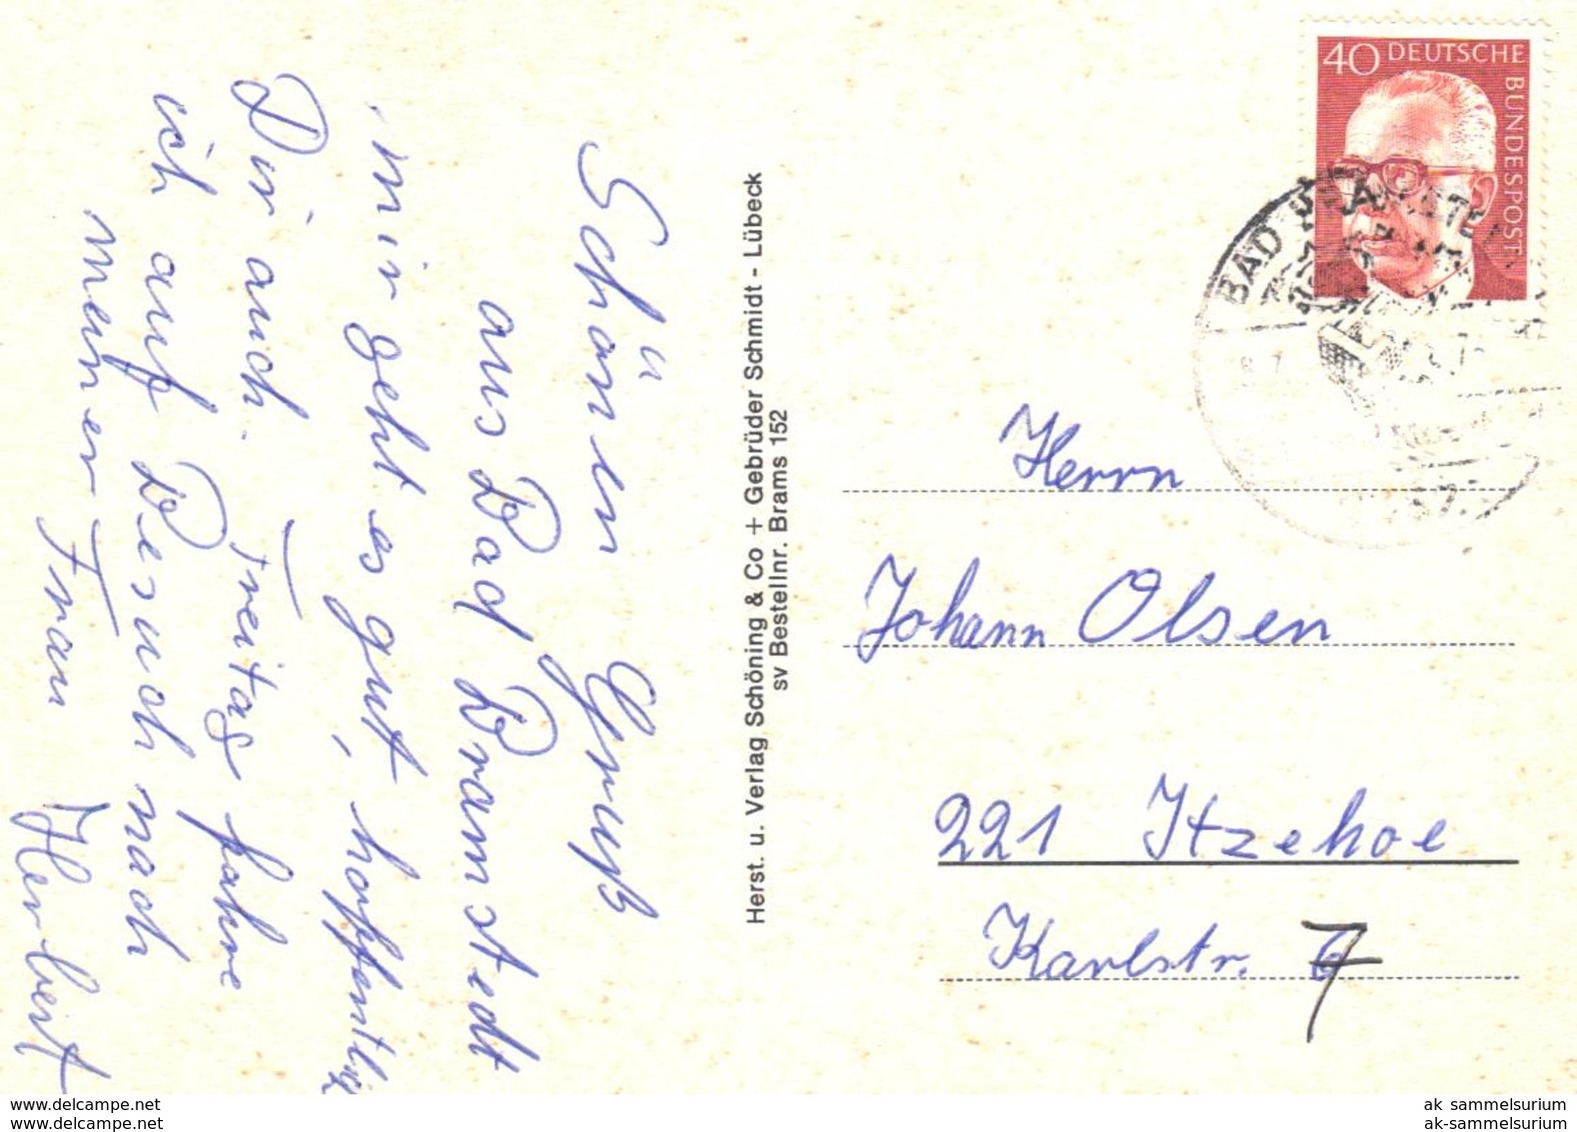 Schönen Gruß
aus Bad Bramstedt
mir geht es gut, hoffentlich
Dir auch. Freitag fahre
ich auf Besuch nach
meiner Frau Herbert
Herst. u. Verlag Schöning & Co + Gebrüder Schmidt - Lübeck
sv Bestellnr. Brams 152
40 DEUTSCHE
BUNDESPOST
BAD BRAMSTE
Herrn
Johann Olsen
221 Itzehoe
Karlstr. 7
www.delcampe.net
www.delcampe.net
ak_sammelsurium
ak-sammelsurium